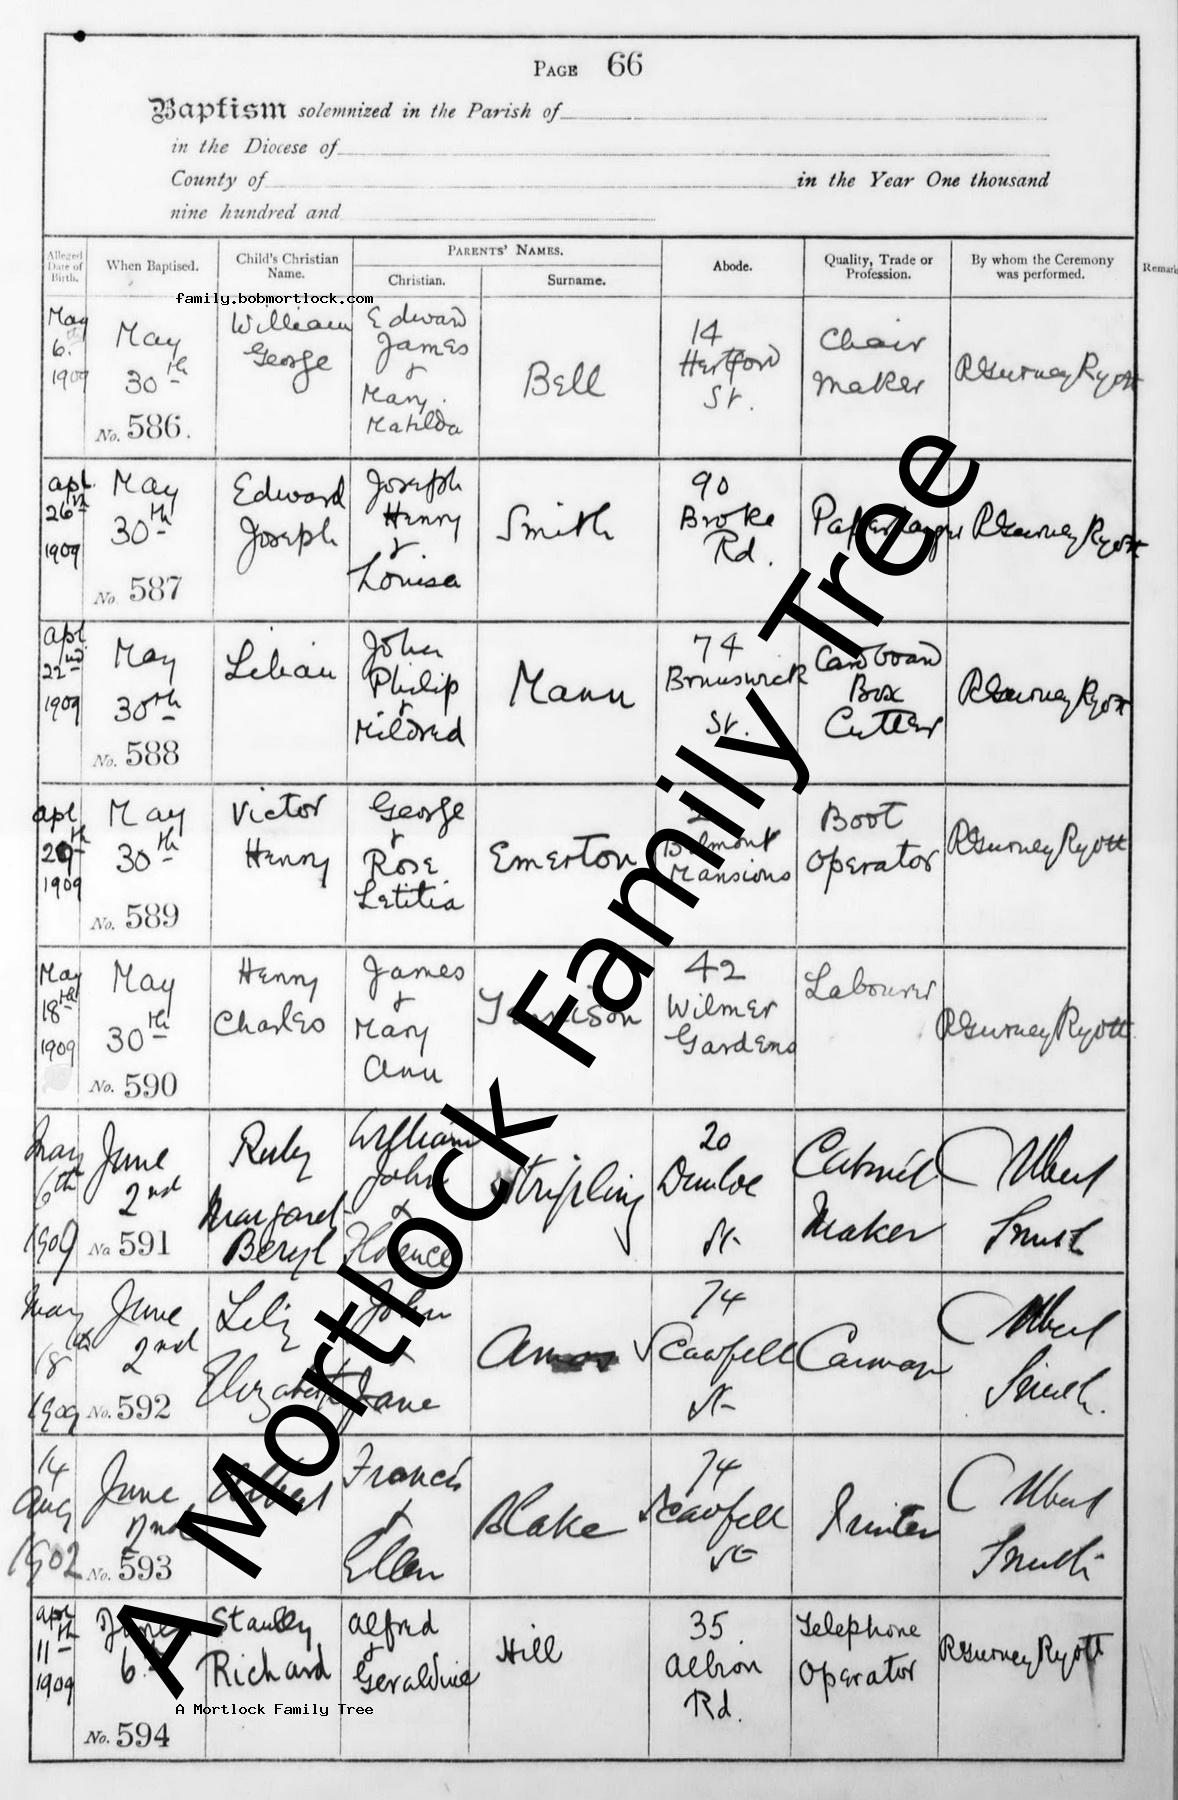 PAGE 66
Baptism solemnized in the Parish of
in the Diocese of
County of in the Year One thousand
nine hundred and
Alleged Date of Birth. When Baptised. Child's Christian Name. PARENTS' NAMES. Christian. Surname. Abode. Quality, Trade or Profession. By whom the Ceremony was performed. Remark
family.bobmortlock.com
May 6. 1909 May 30th No. 586. William George Edward James & Mary Matilda Bell 14 Hertford St. Chair Maker R Gurney Ryott
apl. 26th 1909 May 30th No. 587 Edward Joseph Joseph Henry & Louisa Smith 90 Broke Rd. Paperhanger R Gurney Ryott
apl 22nd 1909 May 30th No. 588 Lilian John Philip & Mildred Mann 74 Brunswick St. Cardboard Box Cutter R Gurney Ryott
apl 29th 1909 May 30th No. 589 Victor Henry George & Rose Letitia Emerton Belmont Mansions Boot Operator R Gurney Ryott
May 18th 1909 May 30th No. 590 Henry Charles James & Mary Ann 42 Wilmer Gardens Labourer R Gurney Ryott
May 6th 1909 June 2nd No 591 Ruby Margaret Beryl William John & Florence Stripling 20 Dunloe St Cabinet Maker Albert Smith
May 18th 1909 June 2nd No. 592 Lily Elizabeth John & Jane Amos 74 Scawfell St Carman Albert Smith.
14 Aug 1902 June 2nd No. 593 Albert Francis & Ellen Blake 74 Scawfell St Printer Albert Smith
apl 11th 1909 June 6 No. 594 Stanley Richard Alfred & Geraldine Hill 35 Albion Rd. Telephone Operator R Gurney Ryott
A Mortlock Family Tree
A Mortlock Family Tree